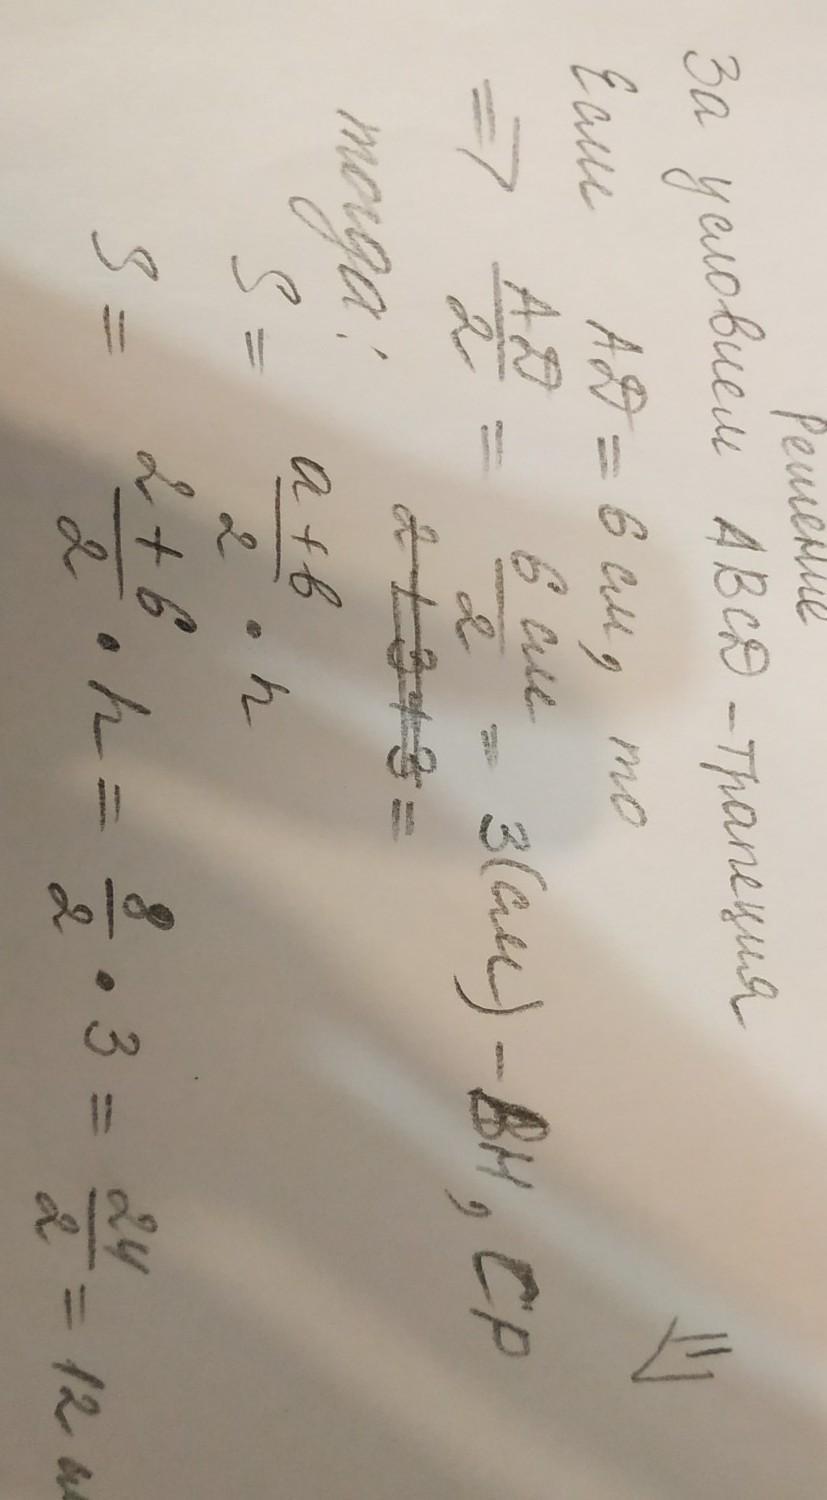 Решение
За условием ABCD - Трапеция
Если AD = 6 см, то =>
=> AD/2 = 6 см/2 = 3(см) - BH, CP
2 + 3 + 3 =
тогда:
S = a+b/2 · h
S = 2+6/2 · h = 8/2 · 3 = 24/2 = 12